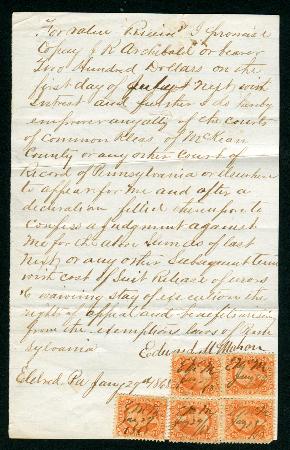 For value Received I promise
to pay J W Archibald or bearer
Two Hundred Dollars on the
first day of next with
Interest and further I do hereby
empower any atty of the courts
of Common Pleas of McKean
County or any other Court of
Record of Pennsylvania or elsewhere
to appear for me and after a
declaration filled therefore to
confess a judgment against
me for the above sum as of last
next or any other Subsequent term
with cost of Suit Release of errors
& waivering stay of execution the
right of appeal and the benefit arising
from the exemptions laws of Penn
sylvania
Edward McMahon
Eldred Pa Jany 29th 1868